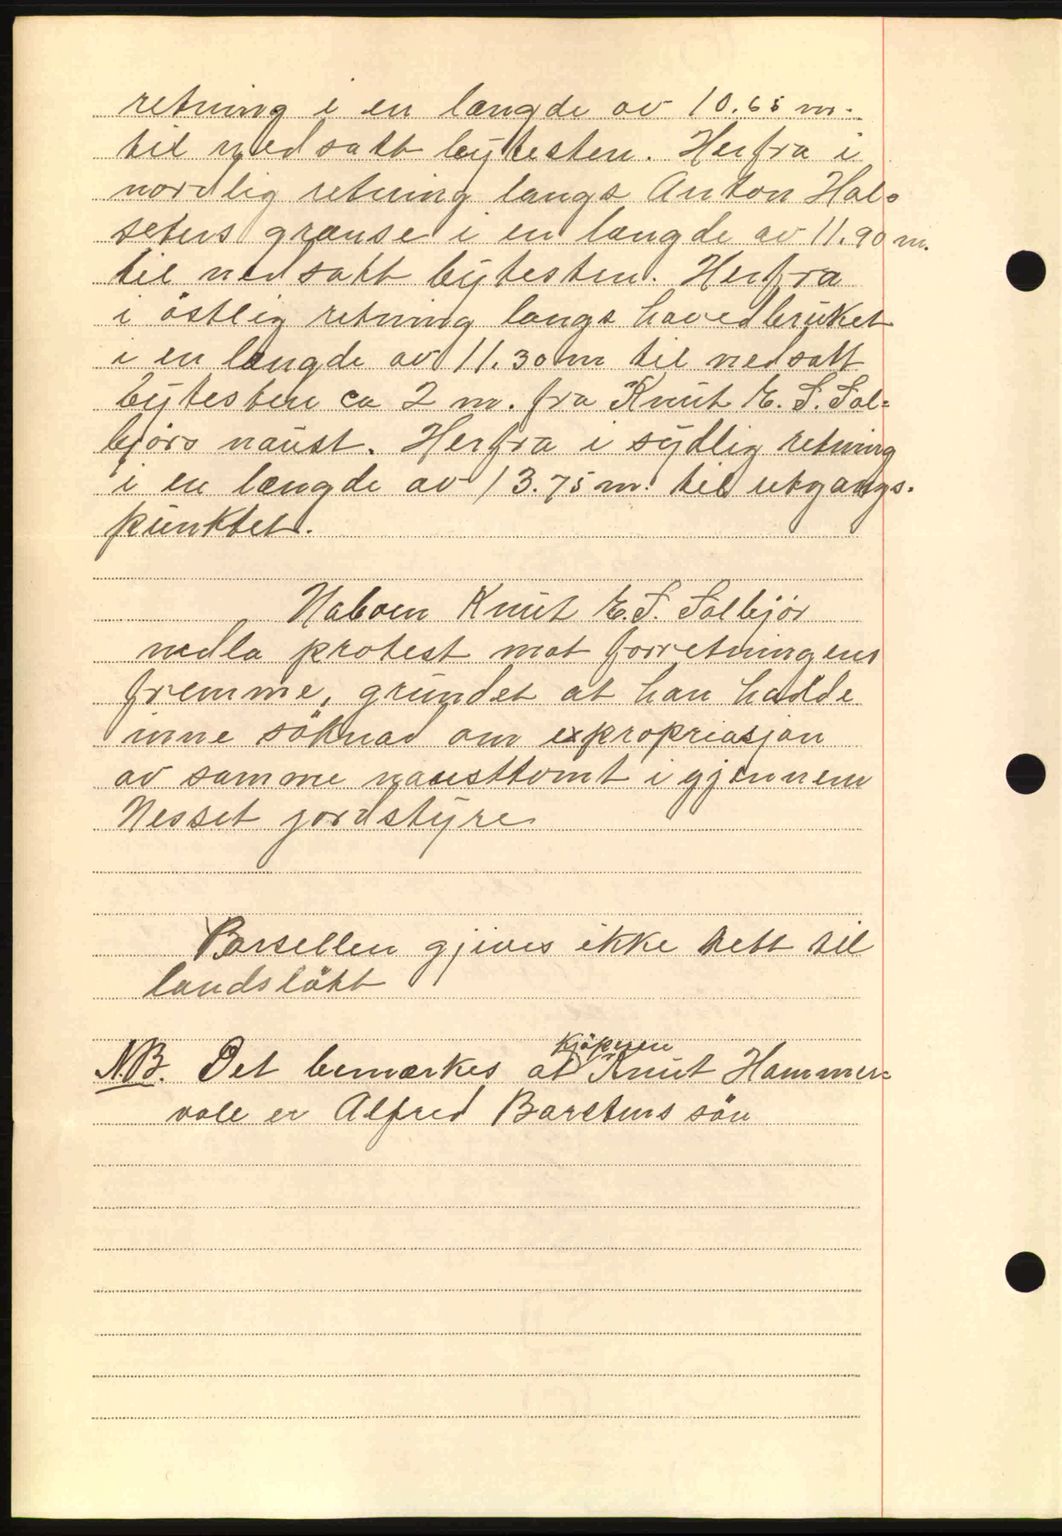 retning i en længde av 10.65 m.
til nedsatt bytesten. Herfra i
nordlig retning langs Anton Hal=
seters grænse i en længde av 11.90 m.
til nedsatt bytesten. Herfra
i östlig retning langs hovedbruket
i en længde av 11.30 m til nedsatt
bytesten ca 2 m. fra Knut E. S. Sol=
björs naust. Herfra i sydlig retning
i en længde av 13.75 m. til utgangs-
punktet.
Naboen Knut E. S. Solbjör
nedla protest mot forretningens
fremme, grundet at han hadde
inne söknad om expropriasjon
av samme nausttomt igjennem
Nesset jordstyre
Parsellen gjives ikke rett til
landslått
kjöperen
N.B. Det bemærkes at Knut Hammer=
vole er Alfred Barstens sön